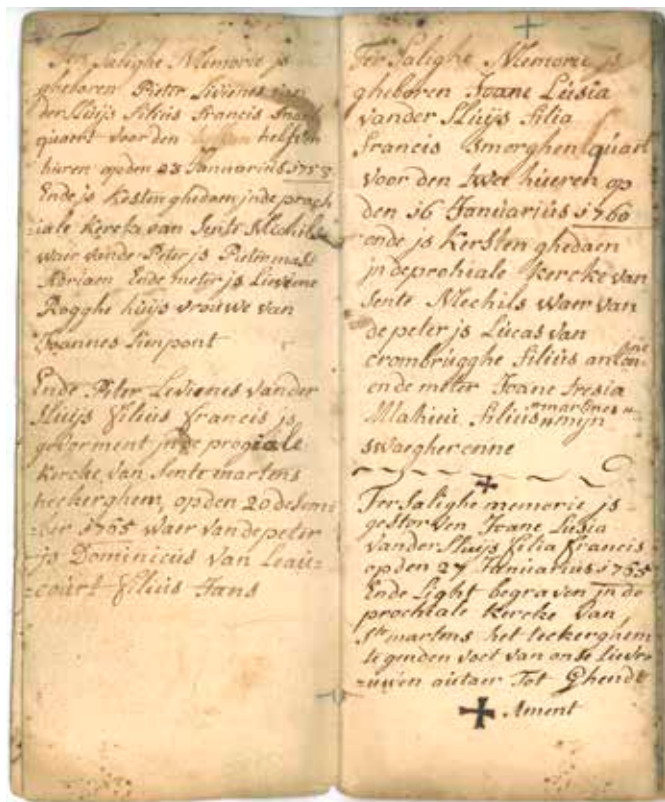 Ter Salighe Memorie js
gheboren Pieter Livienes van
der Sluijs filius francis
quaert voor den helf van
hueren op den 23 Januarius 1758
Ende js kersten ghedaen jnde proch
:iale Kercke van Sente Mechils
waer vande Peter js Pieter
Adriaen Ende meter js Lieviene
Rogghe huijs vrouwe van
Joannes Pienpont
Ende Piter Levienes vander
Sluijs filius francis js
gevorment jnde progiale
Kercke van Sente martens
heckerghem, op den 20 desem:
:ber 1765 waer vande peter
js Dominicus van Leau:
:court filius Jans
Ter Salighe Memorie js
gheboren Joane Lusia
vander Sluijs filia
francis smorghen quart
voor den twee hueren op
den 16 Januarius 1760
ende js Kersten ghedaen
jn deprohiale Kercke van
Sente Mechils waer van
de peter js Lucas van
crombrugghe filius
ende meter Joane tresia
Mahieu filius martines mijn
swaegherenne
Ter Salighe memorie js
gestorven Joane Lusia
vander Sluijs filia francis
op den 27 Januarius 1765
Ende Light begraven jn de
prochiale Kercke van
Ste martens het teckerghem
te genden voet van onse Liever
:ruwen autaer Tot Ghendt
Ament